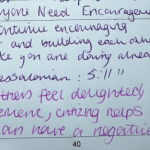 yone Need Encouragem
ontinue encouraging
and building each
e you are doing alrea
essalonian : 5:11"
thers feel delighted
ement, critizing helps
an have a negative
40